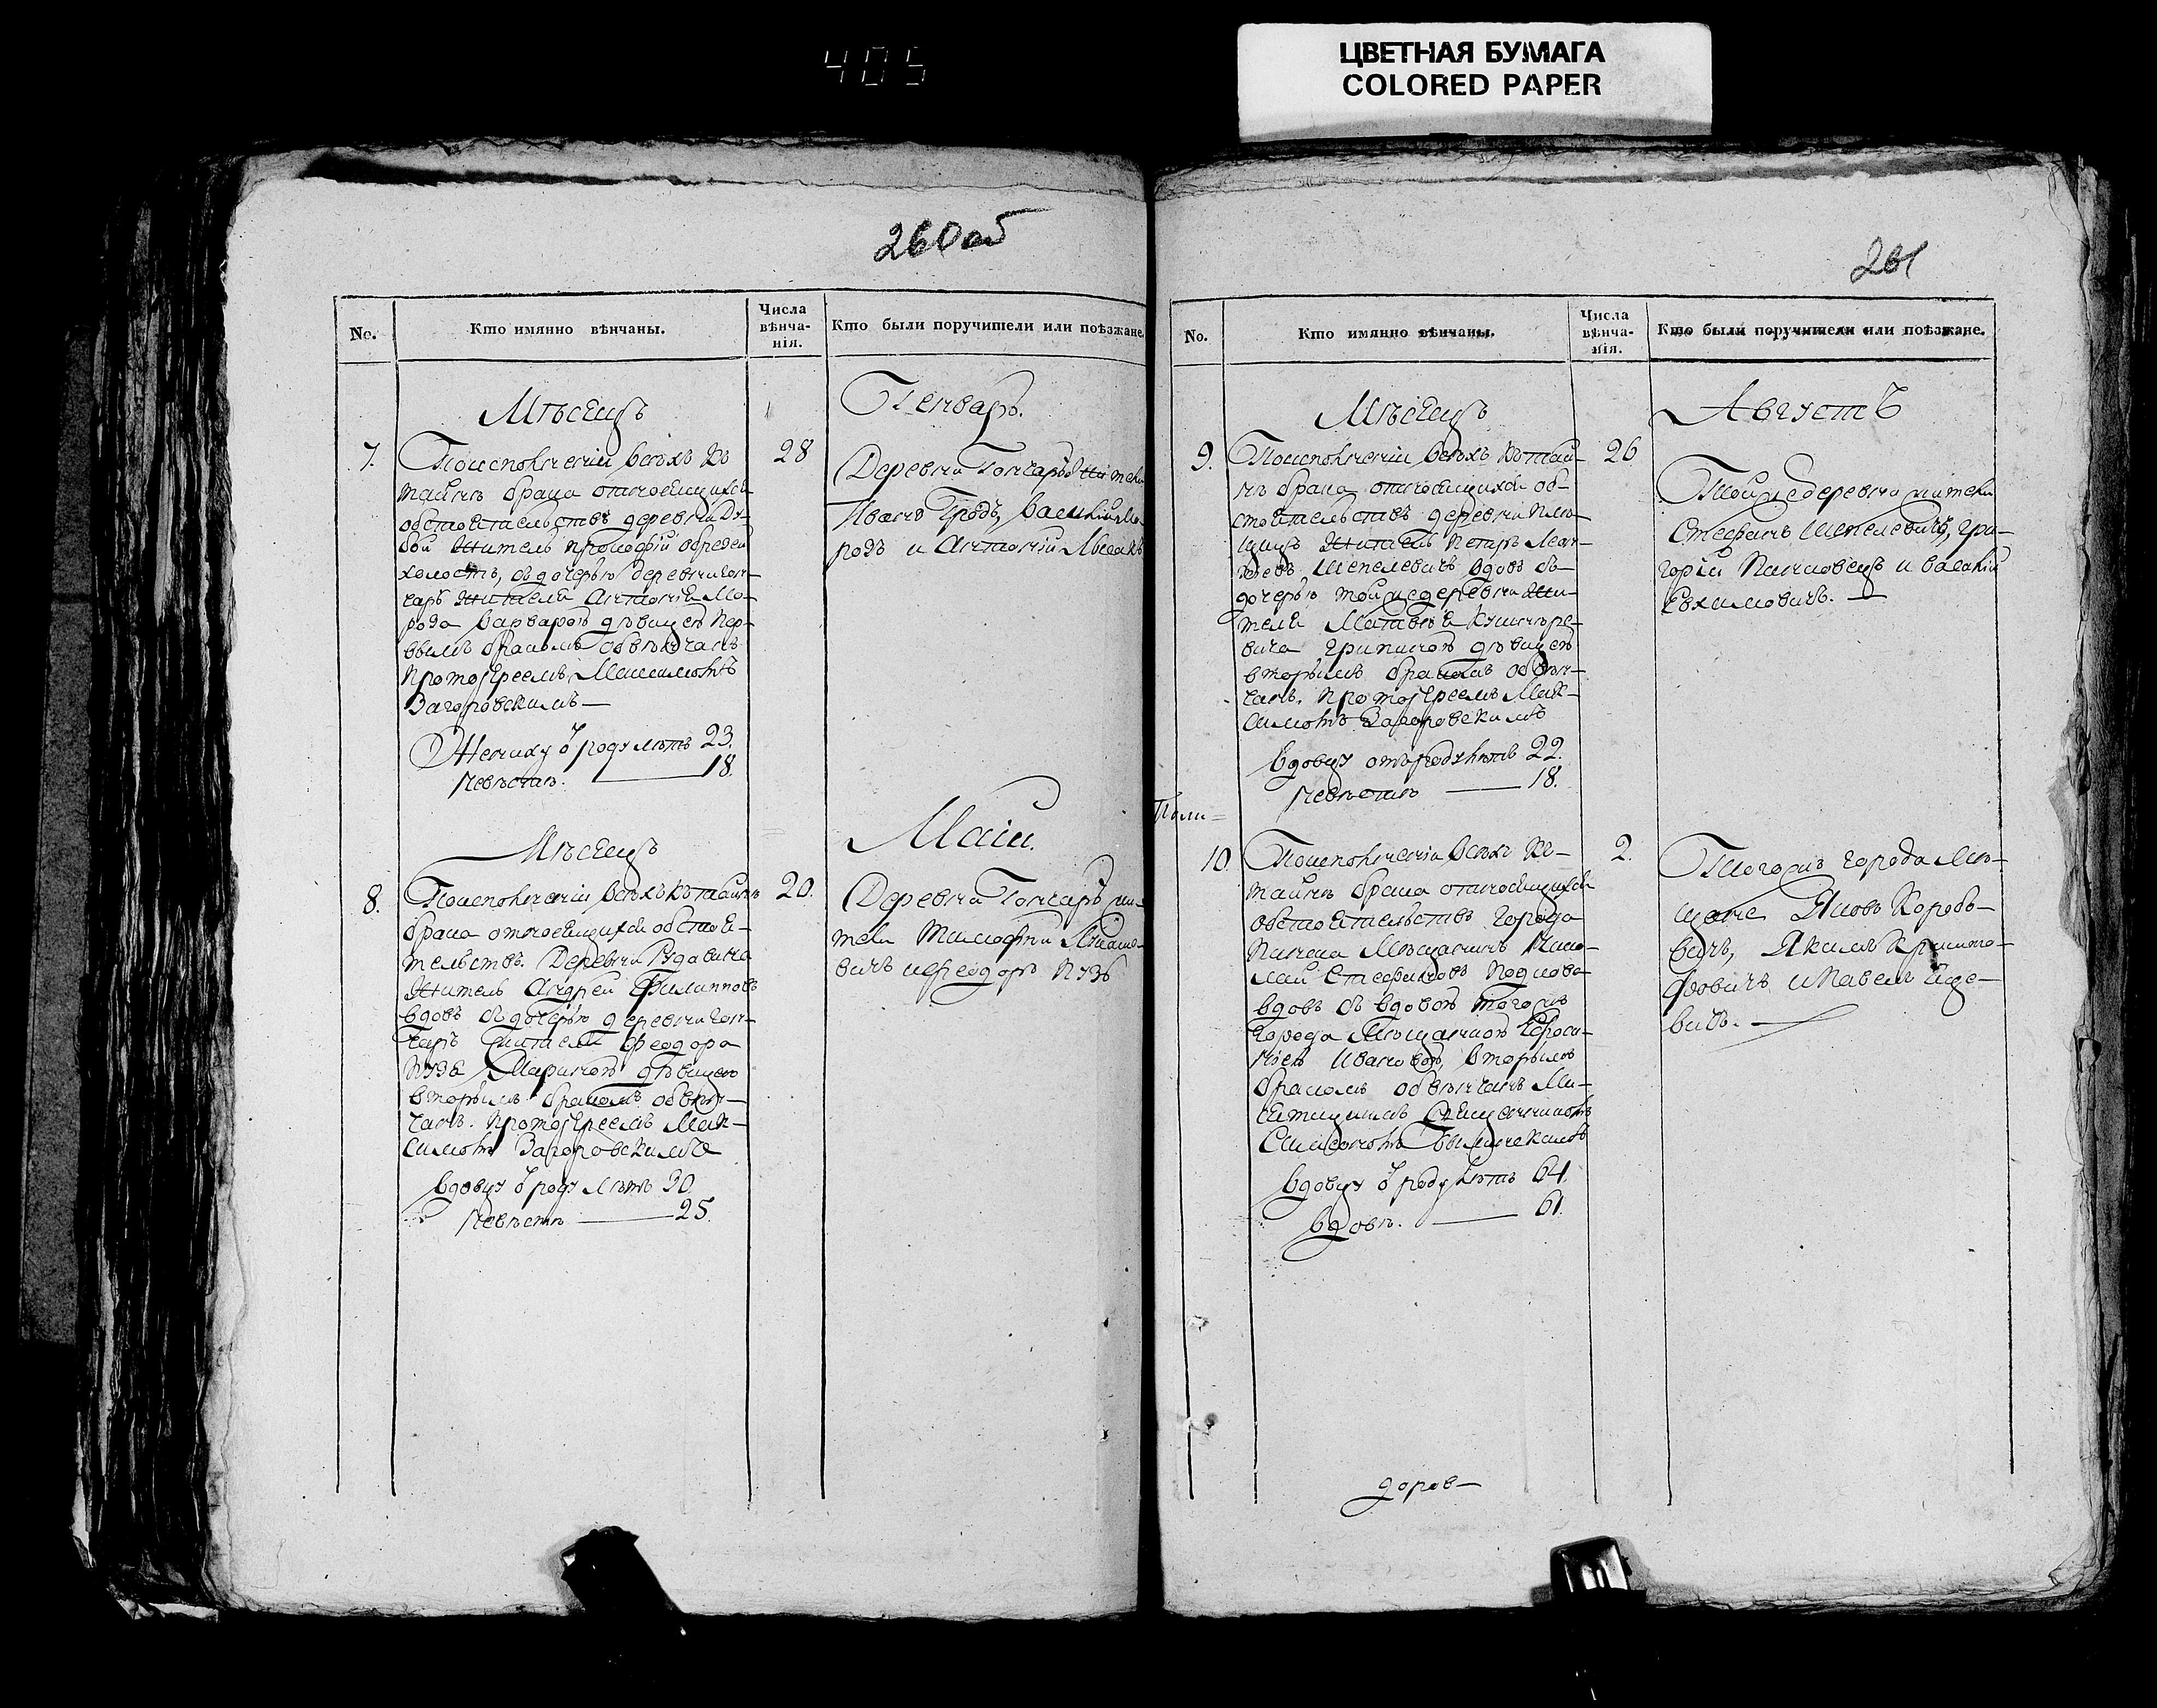 405
ЦВЕТНАЯ БУМАГА
COLORED PAPER
260 об
No.
Кто имянно вѣнчаны.
Числа вѣнча-нія.
Кто были поручители или поѣзжане.
Мѣсецъ
Генваръ.
7.
По исполненіи всѣхъ къ
тайнѣ брака относящихся
обстоятельствъ деревни Ду-
бой житель
холостъ, съ дочерью деревни Гон-
чаръ жителя Антонія Мо-
рода Варварою дѣвицею пер-
вымъ бракомъ обвѣнчанъ
Протоіереемъ Максимомъ
Загоровскимъ —
Жениху ѿ роду лѣтъ 23.
невѣстѣ. — 18.
28
Деревни Гончаръ жители
Иванъ Грод, Василій Мо-
родъ и Антоній
Мѣсецъ
Маій.
8.
По исполненіи всѣхъ къ тайнѣ
брака относящихся обстоя-
тельствъ. Деревни
житель Андрей Филипповъ
вдовъ съ дочерью деревни Гон-
чаръ жителя Феодора
Пузе Мариною дѣвицею
вторымъ бракомъ обвѣн-
чанъ. Протоіереемъ Мак-
симомъ Загоровскимъ
вдовцу ѿ роду лѣтъ 30
невѣстѣ — 25.
20.
Деревни Гончаръ жи-
тели Тимофей
вичъ и Феодоръ Пузъ
261
No.
Кто имянно вѣнчаны.
Числа вѣнча-нія.
Кто были поручители или поѣзжане.
Мѣсецъ
Августъ
9.
По исполненіи всѣхъ къ тай-
нѣ брака относящихся об-
стоятельствъ деревни Плю-
щицъ житель Петръ
Шепелевичъ вдовъ съ
дочерью той же деревни жи-
теля Матвѣя
вича Грипиною дѣвицею
вторымъ бракомъ обвѣн-
чанъ. Протоіереемъ Мак-
симомъ Загоровскимъ
вдовцу отъ роду лѣтъ 22.
невѣстѣ — 18.
26
Той же деревни жители
Стефанъ Шепелевичъ, Гри-
горій и Василій
Евхимовичъ. —
10.
По исполненіи всѣхъ къ
тайнѣ брака относящихся
обстоятельствъ города
Пинска мѣщанинъ Нико-
лай Стефановъ
вдовъ съ вдовою того жъ
города мѣщанкою Ефроси-
ніею Ивановою, вторымъ
бракомъ обвѣнчанъ
Священникомъ
вдовцу ѿ роду лѣтъ 64.
вдовѣ. — 61.
2.
Того жъ города мѣ-
щане Яковъ Корбо-
вичъ, Якимъ
и Павелъ
доров-